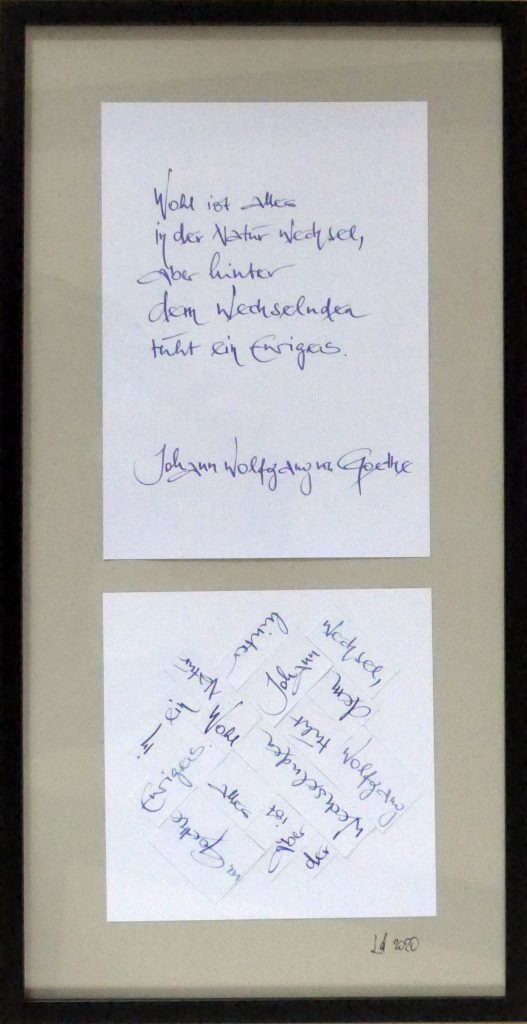 Wohl ist alles
in der Natur Wechsel,
aber hinter
dem Wechselnden
ruht ein Ewiges.
Johann Wolfgang von Goethe
hinter
Wechsel,
Natur
Johann
dem
ein
Wohl
ruht
Wolfgang
in
Wechselnden
Ewiges.
alles
ist
aber
der
von Goethe
2020